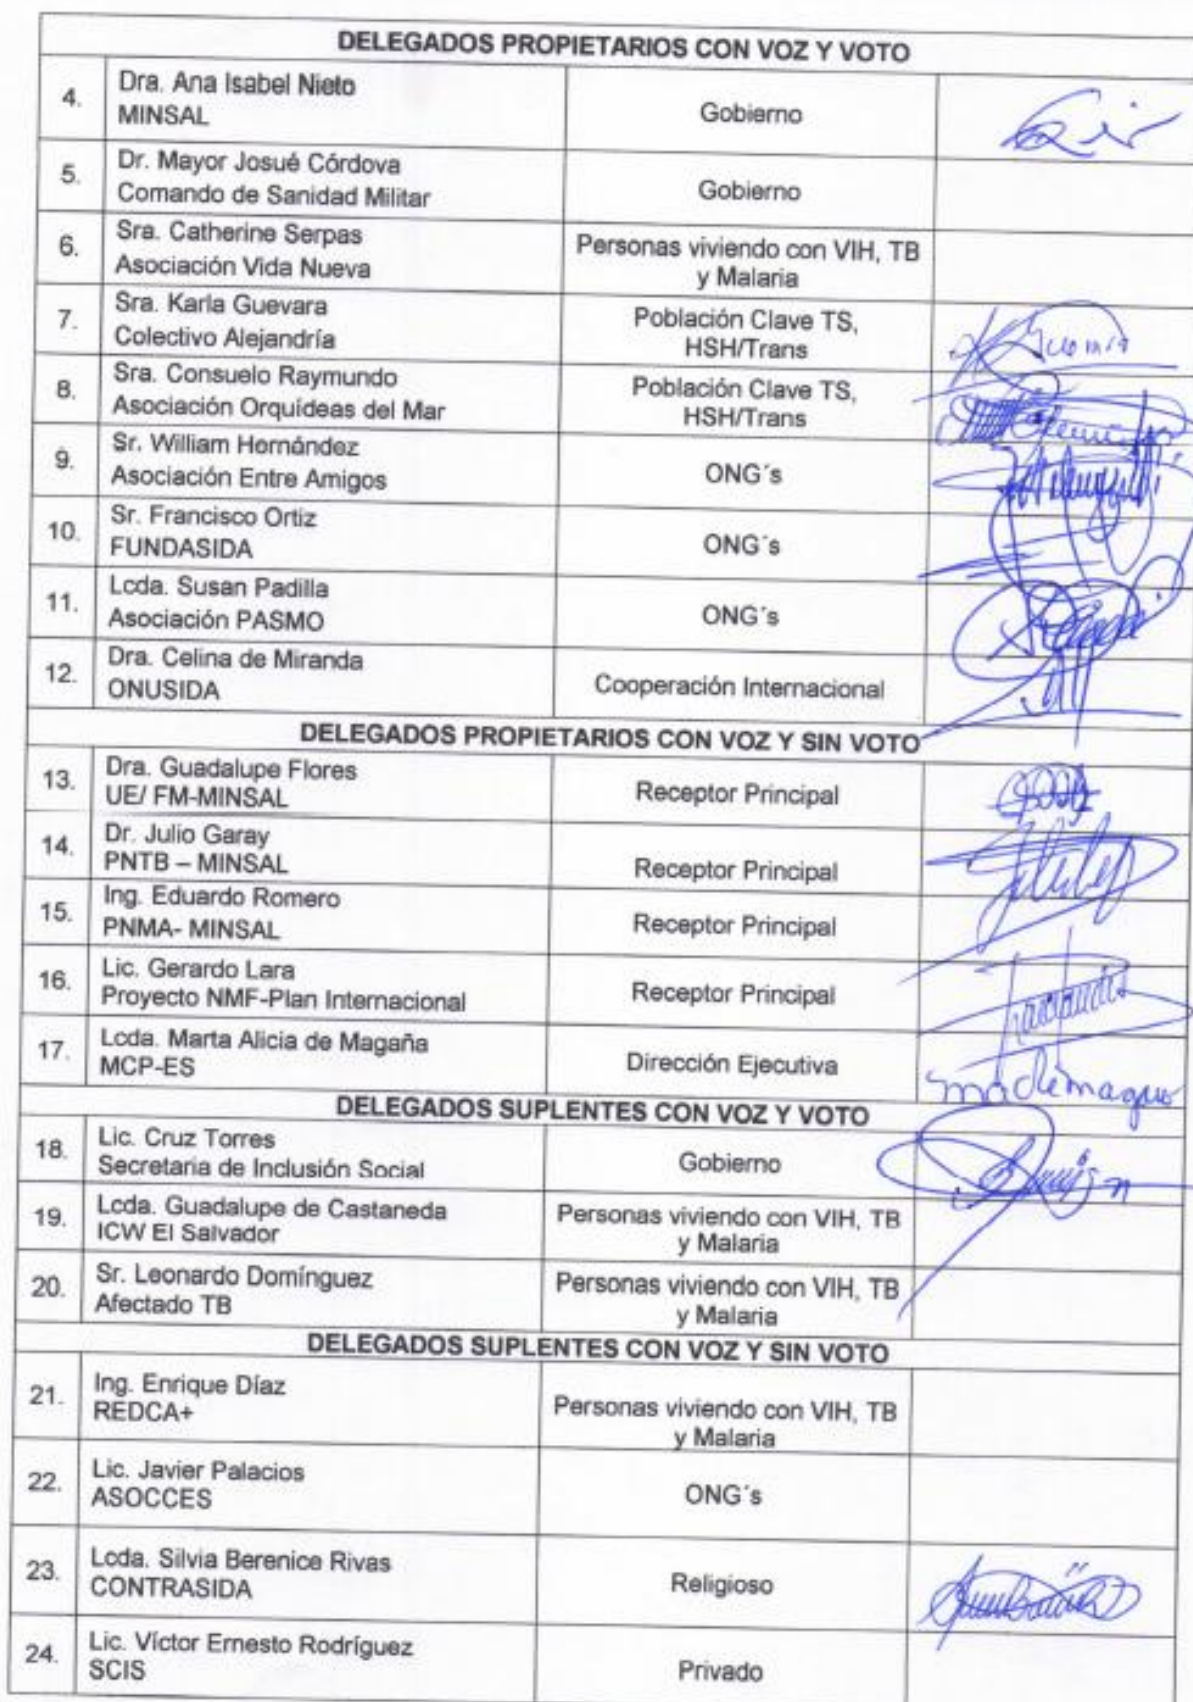 DELEGADOS PROPIETARIOS CON VOZ Y VOTO
4.
Dra. Ana Isabel Nieto
MINSAL
Gobierno
5.
Dr. Mayor Josué Córdova
Comando de Sanidad Militar
Gobierno
6.
Sra. Catherine Serpas
Asociación Vida Nueva
Personas viviendo con VIH, TB
y Malaria
7.
Sra. Karla Guevara
Colectivo Alejandría
Población Clave TS,
HSH/Trans
8.
Sra. Consuelo Raymundo
Asociación Orquídeas del Mar
Población Clave TS,
HSH/Trans
9.
Sr. William Hernández
Asociación Entre Amigos
ONG´s
10.
Sr. Francisco Ortiz
FUNDASIDA
ONG´s
11.
Lcda. Susan Padilla
Asociación PASMO
ONG´s
12.
Dra. Celina de Miranda
ONUSIDA
Cooperación Internacional
DELEGADOS PROPIETARIOS CON VOZ Y SIN VOTO
13.
Dra. Guadalupe Flores
UE/ FM-MINSAL
Receptor Principal
14.
Dr. Julio Garay
PNTB – MINSAL
Receptor Principal
15.
Ing. Eduardo Romero
PNMA- MINSAL
Receptor Principal
16.
Lic. Gerardo Lara
Proyecto NMF-Plan Internacional
Receptor Principal
17.
Lcda. Marta Alicia de Magaña
MCP-ES
Dirección Ejecutiva
DELEGADOS SUPLENTES CON VOZ Y VOTO
18.
Lic. Cruz Torres
Secretaria de Inclusión Social
Gobierno
19.
Lcda. Guadalupe de Castaneda
ICW El Salvador
Personas viviendo con VIH, TB
y Malaria
20.
Sr. Leonardo Domínguez
Afectado TB
Personas viviendo con VIH, TB
y Malaria
DELEGADOS SUPLENTES CON VOZ Y SIN VOTO
21.
Ing. Enrique Díaz
REDCA+
Personas viviendo con VIH, TB
y Malaria
22.
Lic. Javier Palacios
ASOCCES
ONG´s
23.
Lcda. Silvia Berenice Rivas
CONTRASIDA
Religioso
24.
Lic. Víctor Ernesto Rodríguez
SCIS
Privado